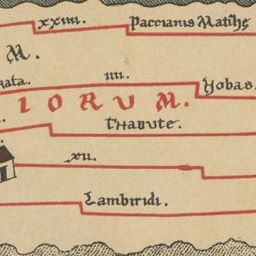 xxiiii. Paccianis Matihe
M.
nata. iiii. Yobas
IORUM.
Thabute.
xii.
Lambiridi.